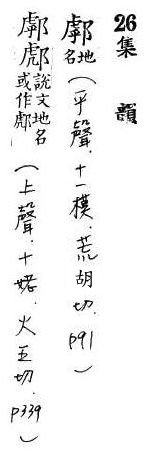 26集 韻
地名（平聲．十一模．荒胡切．p91）
說文地名
或作
（上聲．十姥．火五切．p339）